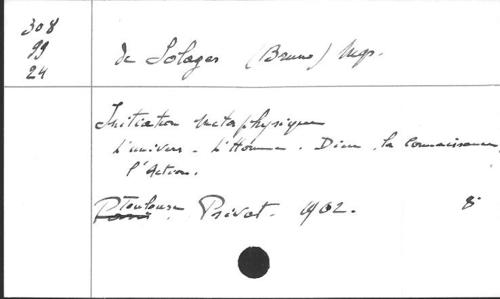 308
99
24
de Solages (Bruno) Mgr.
Initiation métaphysique
L'univers. L'Homme. Dieu, la Connaissance,
l'Action.
Toulouse
Paris. Privat. 1962. 8°